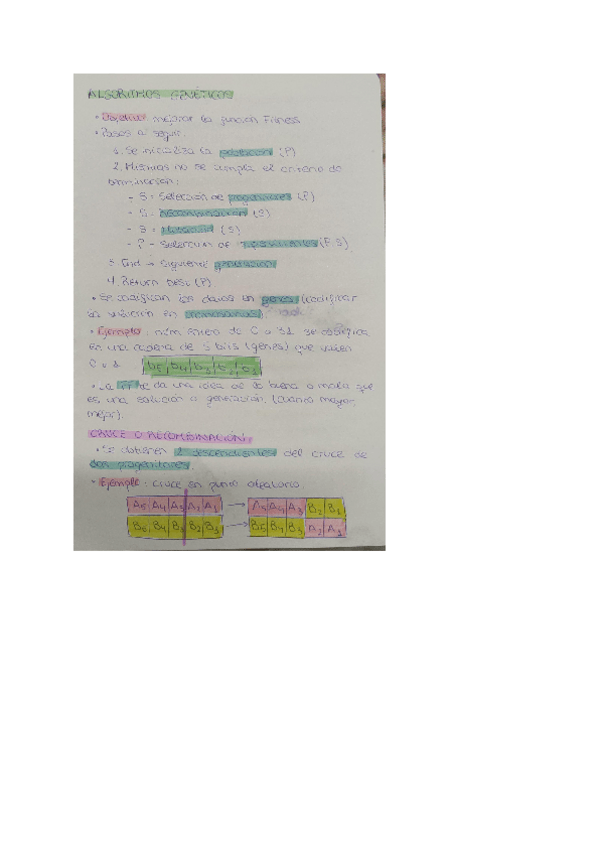 ALGORITMOS GENÉTICOS
• Objetivo: mejorar la función Fitness
• Pasos a seguir:
1. Se inicializa la población (P)
2. Mientras no se cumpla el criterio de
terminación:
- S = Selección de progenitores (P)
- S = recombinación (S)
- S = mutación (S)
- P = Selección de supervivientes (P, S)
3. End → Siguiente generación
4. Return Best (P)
• Se codifican los datos en genes (codificar
la solución en cromosomas).
• Ejemplo: núm entero de 0 a 31 se codifica
en una cadena de 5 bits (genes) que valen
0 o 1
b5 b4 b3 b2 b1
• La da una idea de lo buena o mala que
es una solución o generación. (cuanto mayor,
mejor).
CRUCE O RECOMBINACIÓN:
• Se obtienen 2 descendientes del cruce de
dos progenitores.
• Ejemplo: cruce en punto aleatorio.
A5 A4 A3 A2 A1 → A5 A4 A3 B2 B1
B5 B4 B3 B2 B1 → B5 B4 B3 A2 A1